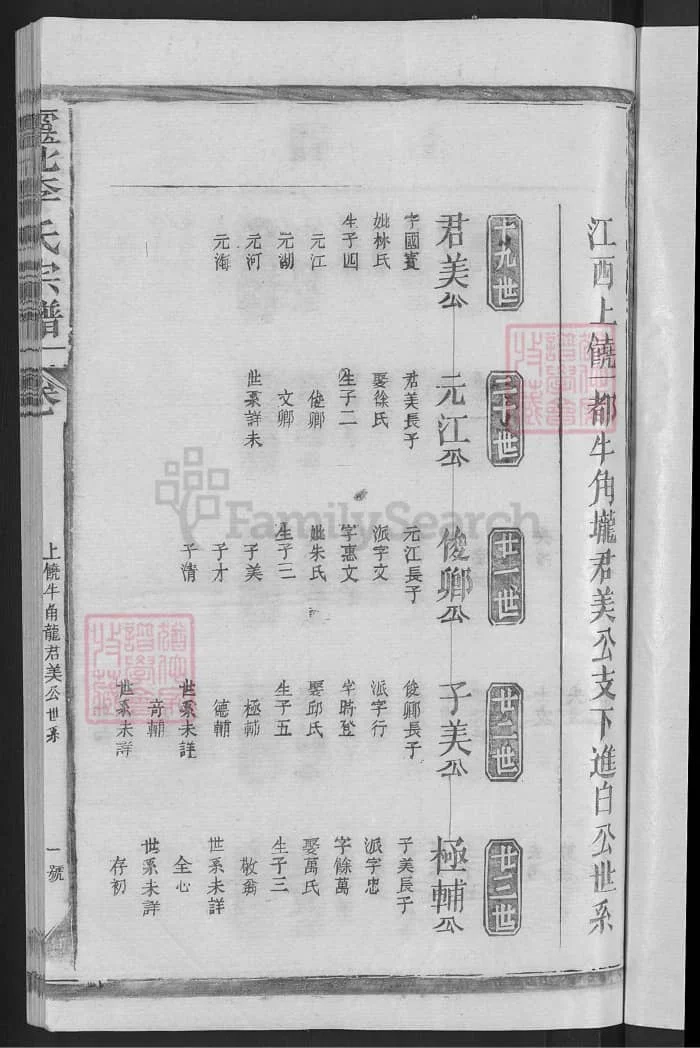 江西上饒一都牛角壠君美公支下進白公世系
十九世
君美公
字國賓
妣林氏
生子四
元江
元湖
元河
元海
二十世
元江公
君美長子
娶徐氏
生子二
俊卿
文卿
世系詳未
廿一世
俊卿公
元江長子
派字文
字惠文
妣朱氏
生子三
子美
子才
子清
廿二世
子美公
俊卿長子
派字行
字時登
娶邱氏
生子五
極輔
德輔
世系未詳
奇輔
世系未詳
廿三世
極輔公
子美長子
派字忠
字餘萬
娶萬氏
生子三
敬翁
世系未詳
全心
世系未詳
存初
北李氏宗譜
上饒牛角龍君美公世系
一號
FamilySearch